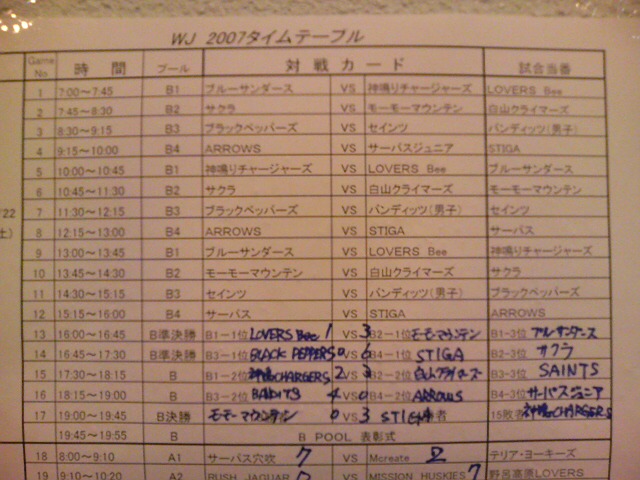 WJ 2007タイムテーブル
Game No. 時間 プール 対戦カード 試合当番
1 7:00～7:45 B1 ブルーサンダース VS 神鳴りチャージャーズ LOVERS Bee
2 7:45～8:30 B2 サクラ VS モーモーマウンテン 白山クライマーズ
3 8:30～9:15 B3 ブラックペッパーズ VS セインツ バンディッツ(男子)
4 9:15～10:00 B4 ARROWS VS サーパスジュニア STIGA
5 10:00～10:45 B1 神鳴りチャージャーズ VS LOVERS Bee ブルーサンダース
6 10:45～11:30 B2 サクラ VS 白山クライマーズ モーモーマウンテン
7 11:30～12:15 B3 ブラックペッパーズ VS バンディッツ(男子) セインツ
8 12:15～13:00 B4 ARROWS VS STIGA サーパス
9 13:00～13:45 B1 ブルーサンダース VS LOVERS Bee 神鳴りチャージャーズ
10 13:45～14:30 B2 モーモーマウンテン VS 白山クライマーズ サクラ
11 14:30～15:15 B3 セインツ VS バンディッツ(男子) ブラックペッパーズ
12 15:15～16:00 B4 サーパス VS STIGA ARROWS
13 16:00～16:45 B準決勝 B1－1位 LOVERS Bee 1 VS 3 B2－1位 モーモーマウンテン B1-3位 ブルーサンダース
14 16:45～17:30 B準決勝 B3－1位 BLACK PEPPERS 0 VS 6 B4－1位 STIGA B2－3位 サクラ
15 17:30～18:15 B B1－2位 神鳴CHARGERS 2 VS 3 B2－2位 白山クライマーズ B3－3位 SAINTS
16 18:15～19:00 B B3－2位 BANDITS 4 VS 0 B4－2位 ARROWS B4－3位 サーパスジュニア
17 19:00～19:45 B決勝 モーモーマウンテン 0 VS 3 STIGA 者 15敗者 神鳴CHARGERS
19:45～19:55 B B POOL 表彰式
18 8:00～9:10 A1 サーパス穴吹 7 VS Mcreate 2 テリア・ヨーキーズ
19 9:10～10:20 A2 RUSH JAGUAR VS MISSION HUSKIES 7 野呂高原LOVERS
/22
土)